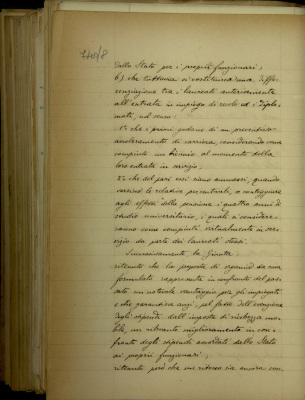 740/8
dallo Stato per i propri funzionari;
b) che tuttavia si costituisca una diffe-
renziazione tra i laureati anteriormente
all'entrata in impiego di ruolo ed i diplo-
mati, nel senso:
1° che i primi godano di un preventivo
acceleramento di carriera, considerando come
compiuto un biennio al momento della
loro entrata in servizio;
2° che del pari essi siano ammessi, quando
versino le relative percentuali, a conteggiare
agli effetti della pensione i quattro anni di
studio universitario, i quali si considere-
ranno come compiuti virtualmente in ser-
vizio da parte dei laureati stessi.
Successivamente la Giunta
ritenuto che la proposta di organico da essa
formulata rappresenta in confronto del pas-
sato un notevole vantaggio per gli impiegati
e che garantisce anzi, pel fatto dell'esenzione
degli stipendi dall'imposta di ricchezza mo-
bile, un rilevante miglioramento in con-
fronto degli stipendi accordati dallo Stato
ai propri funzionari;
ritenuto però che un riterrebbe ancora con